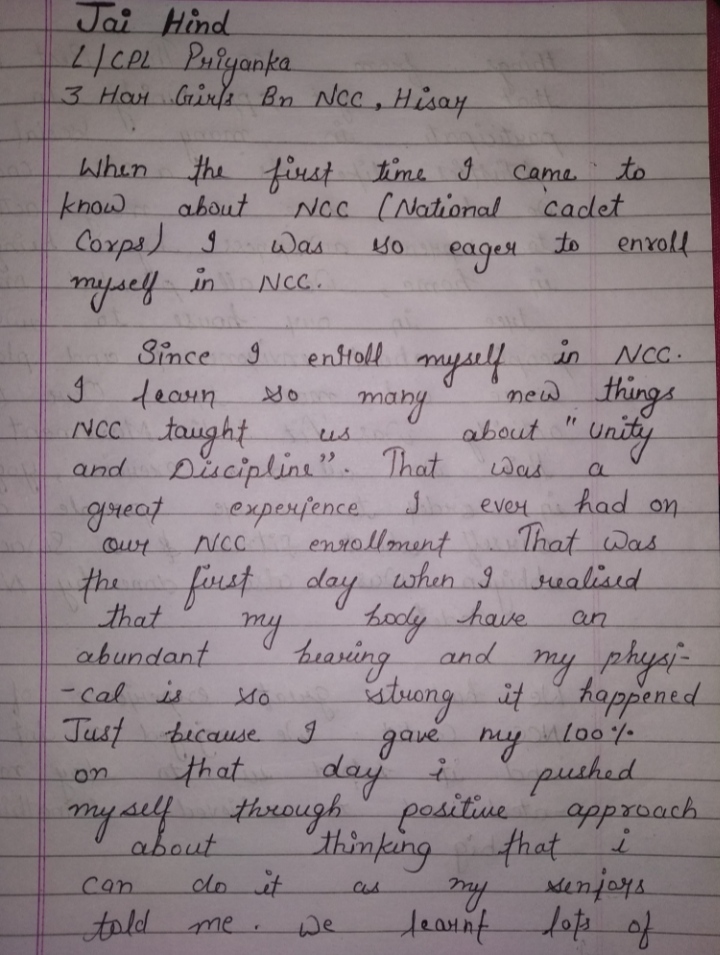 Jai Hind
L/CPL Priyanka
3 Har Girls Bn NCC, Hisar
When the first time I came to
know about NCC (National cadet
Corps) I was so eager to enroll
myself in NCC.
Since I enroll myself in NCC.
I learn so many new things
NCC taught us about "Unity
and Discipline". That was a
great experience I ever had on
our NCC enrollment That was
the first day when I realised
that my body have an
abundant bearing and my physi-
-cal is so strong it happened
Just because I gave my 100%
on that day i pushed
myself through positive approach
about thinking that i
can do it as my seniors
told me. We learnt lots of